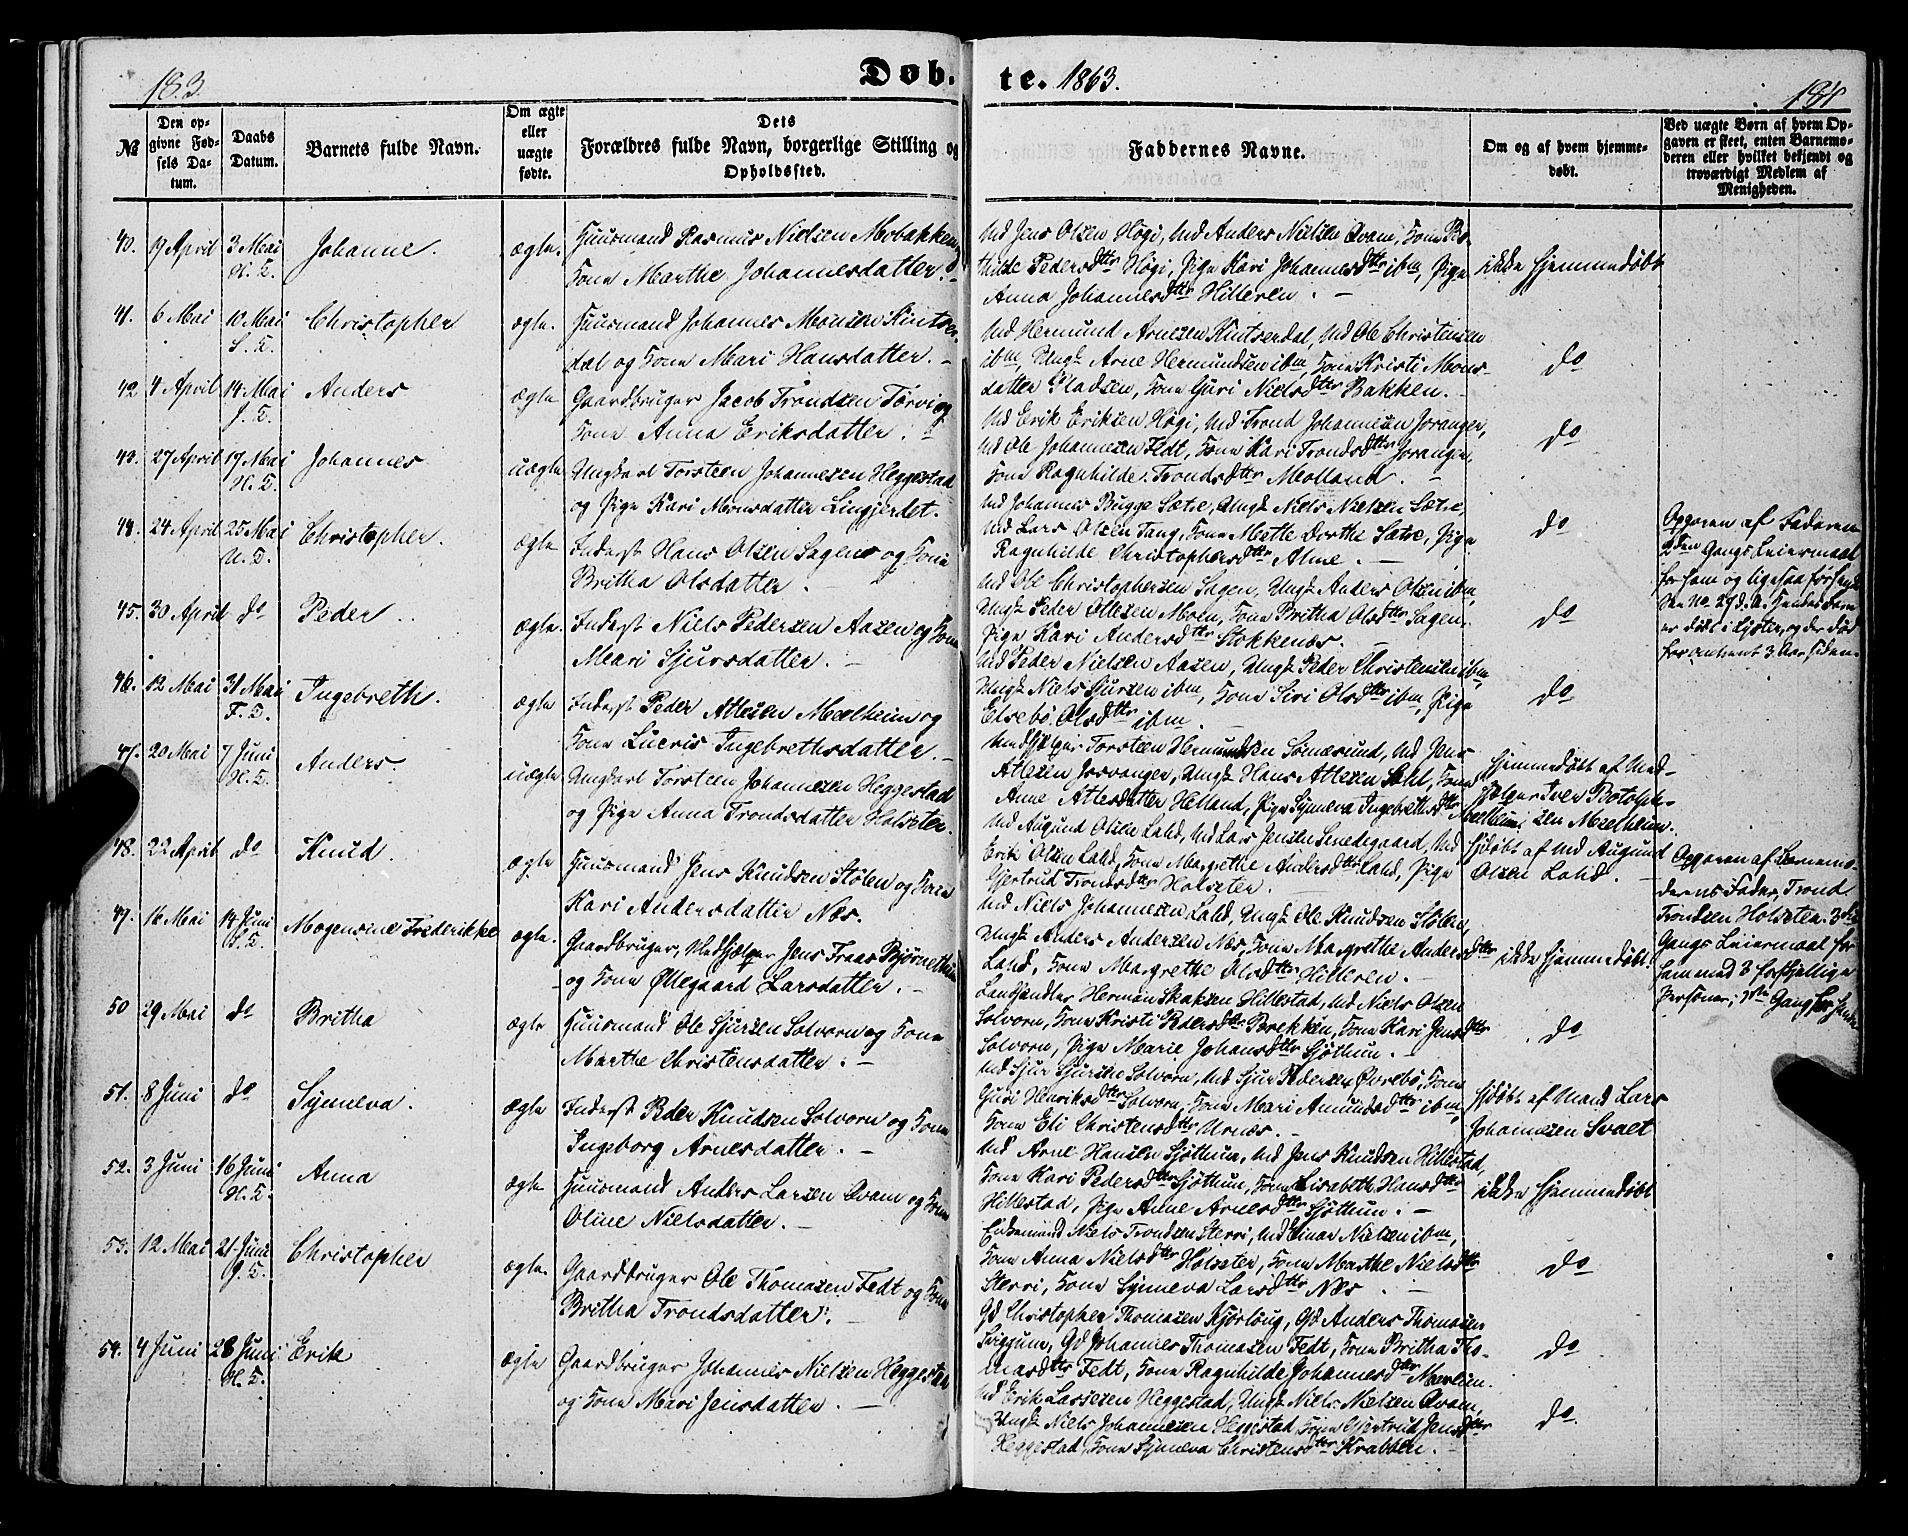 183.
Døb-
te. 1863.
184
№
Den op-
givne Fød-
sels Da-
tum.
Daabs
Datum.
Barnets fulde Navn.
Om ægte
eller
uægte
fødte.
Dets
Forældres fulde Navn, borgerlige Stilling og
Opholdssted.
Faddernes Navne.
Om og af hvem hjemme-
døbt.
Ved uægte Børn af hvem Op-
gaven er skeet, enten Barnemo-
deren eller hvilket bekjendt og
troværdigt Medlem af
Menigheden.
40. 19 April 3 Mai Johanne. ægte. Huusmand Rasmus Nielsen Mobakken og
H. K.
Kone Marthe Johannesdatter. -
Md Jens Olsen Høgi, Md Anders Nielsen Qvam, Kone Bo-
thilde Pedersdttr Høgi, Pige Kari Johannesdttr ibm, Pige
Anna Johannesdttr Hilleren. -
ikke hjemmedøbt
41. 6 Mai 10 Mai Christopher ægte. Huusmand Johannes Monsen Kintser-
S. K.
dal og Kone Mari Hansdatter. -
Md Hermund Arnesen Kintserdal, Md Ole Christensen
ibm, Ungk Arne Hermundsen ibm, Kone Kristi Mons-
datter Pladsen, Kone Guri Nielsdttr Bakken. -
do
42 4 April 14 Mai Anders ægte Gaardbruger Jacob Trondsen Torvi og
J. K.
Kone Anna Eriksdatter. -
Md Erik Eriksen Høgi, Md Trond Johannesen Joranger,
Md Ole Johannesen Fedt, Kone Kari Trondsdttr Joranger,
Kone Ragnhilde Trondsdttr Molland. -
do
43. 27 April 17 Mai Johannes uægte Ungkarl Torsteen Johannesen Heggestad
H. K.
og Pige Kari Monsdatter Lingjerdet.
Md Johannes Bugge Sætre, Ungk Niels Nielsen Sætre,
Md Lars Olsen Tang, Kone Mette Dorthe Sætre, Pige
Ragnhilde Christophersdttr Alme. -
do
Opgaven af Faderen
2den Gangs Leiermaal
for ham og ligesaa for hende
3 Aar siden.
44. 24 April 25 Mai Christopher. ægte Inderst Hans Olsen Sagen og Kone
Britha Olsdatter.
Md Ole Christophersen Sagen, Ungk Anders Olsen ibm,
Ungk Peder Ottesen Moen, Kone Britha Olsdttr Sagen.
Pige Kari Andersdttr Stokkenæs. -
do
45. 30 April do Peder. ægte. Inderst Niels Pedersen Aasen og Kone
Mari Sjursdatter. -
Md Peder Nielsen Aasen, Ungk Peder Christensen ibm,
Ungk Niels Sjursen ibm, Kone Siri Olsdttr ibm, Pige
Elsebø Olsdttr ibm. -
do
46. 12 Mai 31 Mai Ingebreth. ægte Inderst Peder Attesen Melheim og
F. K.
Kone Lucris Ingebrethsdatter. -
Medhjælper Torsteen Hermundsen Somærund, Md Jens
Attesen Joranger, Ungk Hans Attesen Lahl, Kone
Anne Attesdatter Helland, Pige Synneva Ingebrethsdttr Melheim.
Hjemmedøbt af Med-
hjælper Iver Botolph-
sen Melheim.
47. 20 Mai 7 Juni Anders. uægte Ungkarl Torsteen Johannesen Heggestad
H. K.
og Pige Anna Trondsdatter Holsæter.
Md Augund Olsen Lahd, Md Lars Jensen Smedegaard, Md
Erik Olsen Lahd, Kone Margrethe Andersdttr Lahd, Pige
Gjertrud Trondsdttr Holsæter. -
Hjdøbt af Md Augund
Olsen Lahd. -
Opgaven af Barnemo-
derens Fader, Trond
Trondsen Holsæter. 3die
Gangs Leiermaal for
ham med 3 forskjellige
Personer; 1ste Gang for hende
48. 22 April do Knud. ægte Huusmand Jens Knudsen Stølen og Kone
Kari Andersdatter Næs.
Md Niels Johannesen Lahd, Ungk Ole Knudsen Stølen,
Ungk Anders Andersen Næs, Kone Margrethe Andersdttr
Lahd, Kone Margrethe Olsdttr Hilleren. -
ikke hjemmedøbt.
49. 16 Mai 14 Juni Mogensine Frederikke ægte. Gaardbruger, Medhjælper Jens Fraas Bjørnethun
S. K.
og Kone Øllegaard Larsdatter. -
Landhandler Herman Skaksen Hillestad, Md Niels Olsen
Solvorn, Kone Kristi Pedersdttr Brekken, Kone Kari Jensdttr
Solvorn, Pige Marie Johansdttr Sjøthun. -
do
50 29 Mai do Britha ægte Huusmand Ole Sjursen Solvorn og Kone
Marthe Christensdatter. -
Md Sjur Sjursen Solvorn, Md Sjur Pedersen Øvrebø, Kone
Guri Henriksdttr Solvorn, Kone Mari Amundsdttr ibm,
Kone Eli Christensdttr Urnæs. -
51. 8 Juni do Synneva. ægte Inderst Peder Knudsen Solvorn og Kone
Ingeborg Arnesdatter. -
Md Arne Hansen Sjøthun, Md Jens Knudsen Hillestad,
Kone Kari Pedersdttr Sjøthun, Kone Lisabeth Hansdttr
Hillestad, Pige Anne Arnesdttr Sjøthun. -
Hjdøbt af Mand Lars
Johannesen Svaet
52. 3 Juni 16 Juni Anna ægte Huusmand Anders Larsen Qvam og Kone
H. K.
Oline Nielsdatter. -
Enkemand Niels Trondsen Sterri, Md Einar Nielsen ibm,
Kone Anna Nielsdttr Holsæter, Kone Marthe Nielsdttr
Sterri, Kone Synneva Larsdttr Næs. -
ikke hjemmedøbt
53. 12 Mai 21 Juni Christopher ægte. Gaardbruger Ole Thomasen Fedt og Kone
G. K.
Britha Trondsdatter.
Gd Christopher Thomasen Kjørloug, Gd Anders Thomasen
Sviggum, Gd Johannes Thomasen Fedt, Kone Britha Tho-
masdttr Fedt, Kone Ragnhilde Johannesdttr Morken.
do
54. 4 Juni 28 Juni Erik ægte Gaardbruger Johannes Nielsen Heggestad
H. K.
og Kone Mari Jensdatter. -
Md Erik Lassesen Heggestad, Ungk Niels Nielsen Qvam,
Ungk Niels Johannesen Heggestad, Kone Gjertrud Jensdttr
Heggestad, Kone Synneva Christensdttr Krabben. -
do